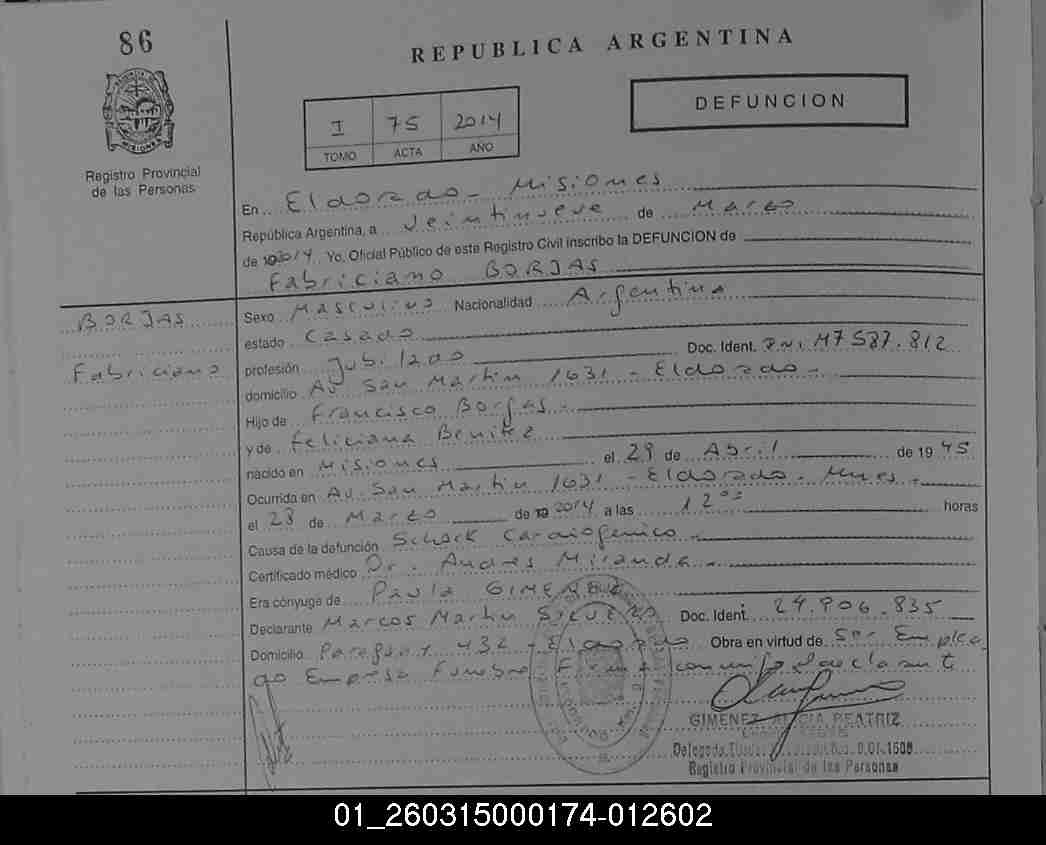 86
REPUBLICA ARGENTINA
DEFUNCION
I 75 2014
TOMO ACTA AÑO
Registro Provincial
de las Personas
En Eldorado - Misiones
República Argentina, a Veintinueve de Marzo
de 2014 Yo, Oficial Público de este Registro Civil inscribo la DEFUNCION de
Fabriciano BORJAS
BORJAS
Fabriciano
Sexo Masculino Nacionalidad Argentina
estado Casado
profesión Jubilado Doc. Ident. D.N.I M7587.812
domicilio Av San Martin 1631 - Eldorado -
Hijo de Francisco Borjas -
y de Feliciana Benitez
nacido en Misiones el 29 de Abril de 1945
Ocurrida en Av. San Martin 1631 - Eldorado - Mnes -
el 28 de Marzo de 2014 a las 12 00 horas
Causa de la defunción Schock Cardiogenico -
Certificado médico Dr. Andres Miranda -
Era cónyuge de Paula GIMENEZ
Declarante Marcos Martin Doc. Ident. 24.906.835
Domicilio Paraguay 432 - Eldorado Obra en virtud de Ser Emplea
do Empresa Funebre Firma conmigo el declarante
GIMENEZ ALICIA BEATRIZ
Registro Provincial de las Personas
01_260315000174-012602